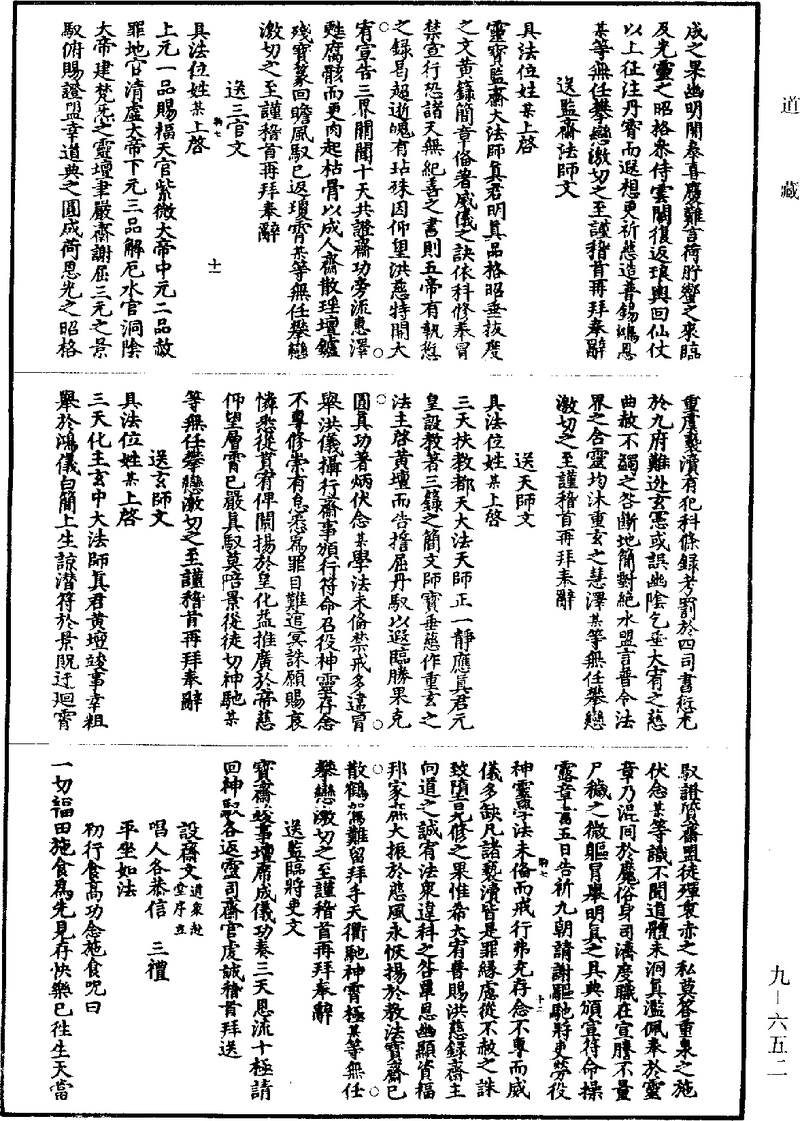 道藏
成之果幽明開泰喜慶難言荷肸蠁之來臨
及光靈之昭格泰侍雲關復返琅輿回仙仗
以上征注丹霄而遐想更祈慈造普錫鴻恩
某等無任攀戀激切之至謹稽首再拜奉辭
送監齋法師文
具法位姓某上啓
靈寶監齋大法師真君明真品格昭垂拔度
之文黃籙簡章俻著威儀之訣依科修奉冒
禁宣行恐諸天無紀善之書則五帝有執愆
之錄曷超逝魄有玷殊因仰望洪慈特開大
宥宣告三界關聞十天共證齋功旁流惠澤
甦腐骸而更肉起枯骨以成人齋散瑤壇鑪
殘寶篆回瞻風馭已返瓊霄某等無任攀戀
激切之至謹稽首再拜奉辭
送三官文
具法位姓某上啓
上元一品賜福天官紫微大帝中元二品赦
罪地官清虛大帝下元三品解厄水官洞陰
大帝建梵炁之靈壇聿嚴齋謝屈三元之景
馭俯賜證盟幸道典之圓成荷恩光之昭格
十一
重虔褻瀆有犯科條錄考罰於四司書愆尤
於九府難逃玄憲或誤幽陰乞垂大宥之慈
曲赦不蠲之咎斷地簡對絕水盟言普令法
界之含靈均沐重玄之慧澤某等無任攀戀
激切之至謹稽首再拜奉辭
送天師文
具法位姓某上啓
三天扶教都天大法天師正一靜應真君元
皇設教著三錄之簡文師寶垂慈作重玄之
法主啓黃壇而告擔屈丹馭以遐臨勝果克
圓真功著炳伏念某學法未俻禁戒多違冒
舉洪儀攝行齋事頒行符命召役神靈存念
不專修崇有怠悉為罪目難逭冥誅願賜哀
憐乘從貰宥俾闡揚於皇化益推廣於帝慈
仰望層霄已嚴真馭莫陪景從徒切神馳某
等無任攀戀激切之至謹稽首再拜奉辭
送玄師文
具法位姓某上啓
三天化主玄中大法師真君黃壇竣事幸粗
舉於鴻儀白簡上生諒潛符於景貺迂迴霄
馭證質齋盟徒殫衷赤之私莫荅重臬之施
伏念某等識不聞道體未洞真濫佩奉於靈
章乃混同於魔俗身司濟度職在宣謄不量
尸穢之微軀冒舉明真之具典頒宣符命操
露章言五日告祈九朝請謝驅馳將吏勞役
神靈學法未俻而戒行弗充存念不專而威
儀多缺凡諸褻瀆皆是罪緣慮從不赦之誅
致墮晃修之果惟希大宥普賜洪慈錄齋主
向道之誠宥法衆違科之咎單恩幽顯資福
邦家庶大振於慈風永恢揚於教法寶齋已
散鶴駕難留拜手天衢馳神霄極某等無任
攀戀激切之至謹稽首再拜奉辭
十二
送監臨將吏文
寶齋竣事壇席成儀功奏三天恩流十極請
回神馭各返靈司齋官虔誠稽首拜送
設齋文道衆赴堂序立
唱人各恭信 三禮
平坐如法
初行食高功念施食呪曰
一切福田施食為先見存快樂已往生天當
九—六五二